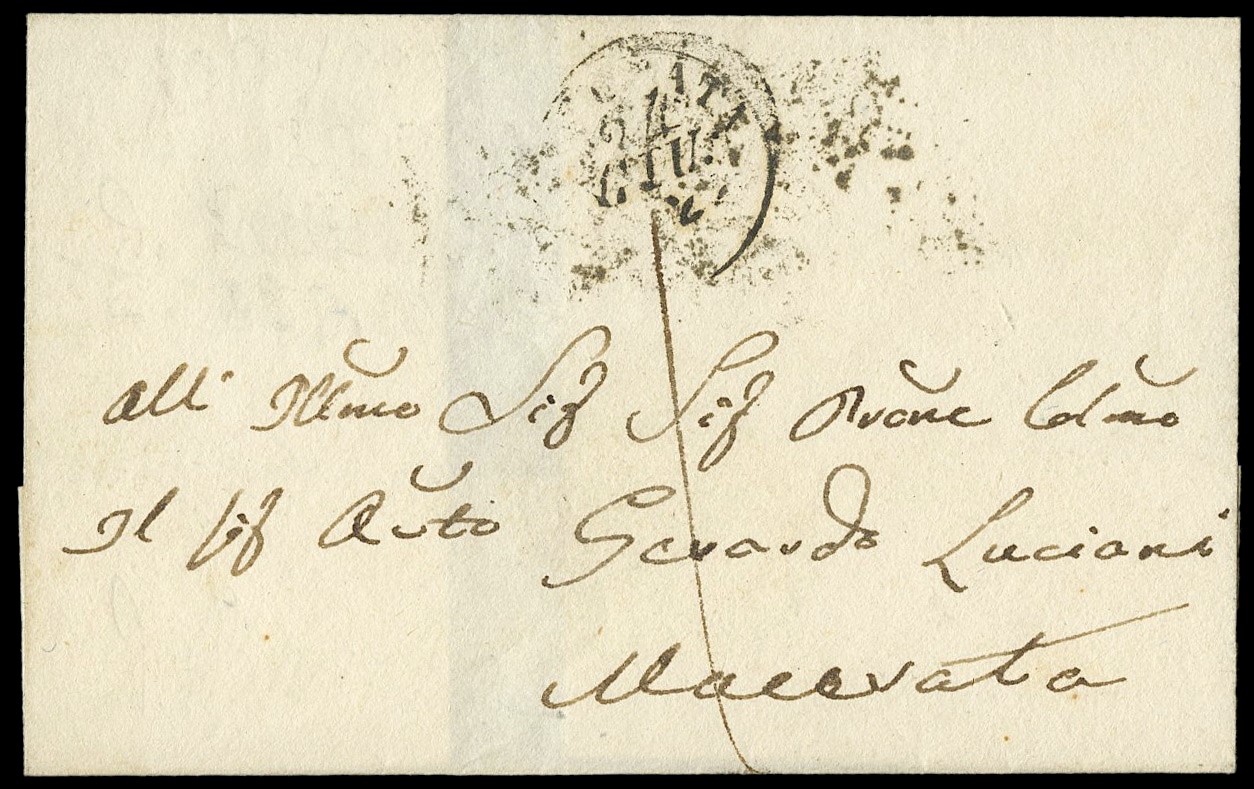 24
GIU.
All Illmo Sig Sig Prone Colmo
Il Sig Avto Gerardo Luciani
Macerata